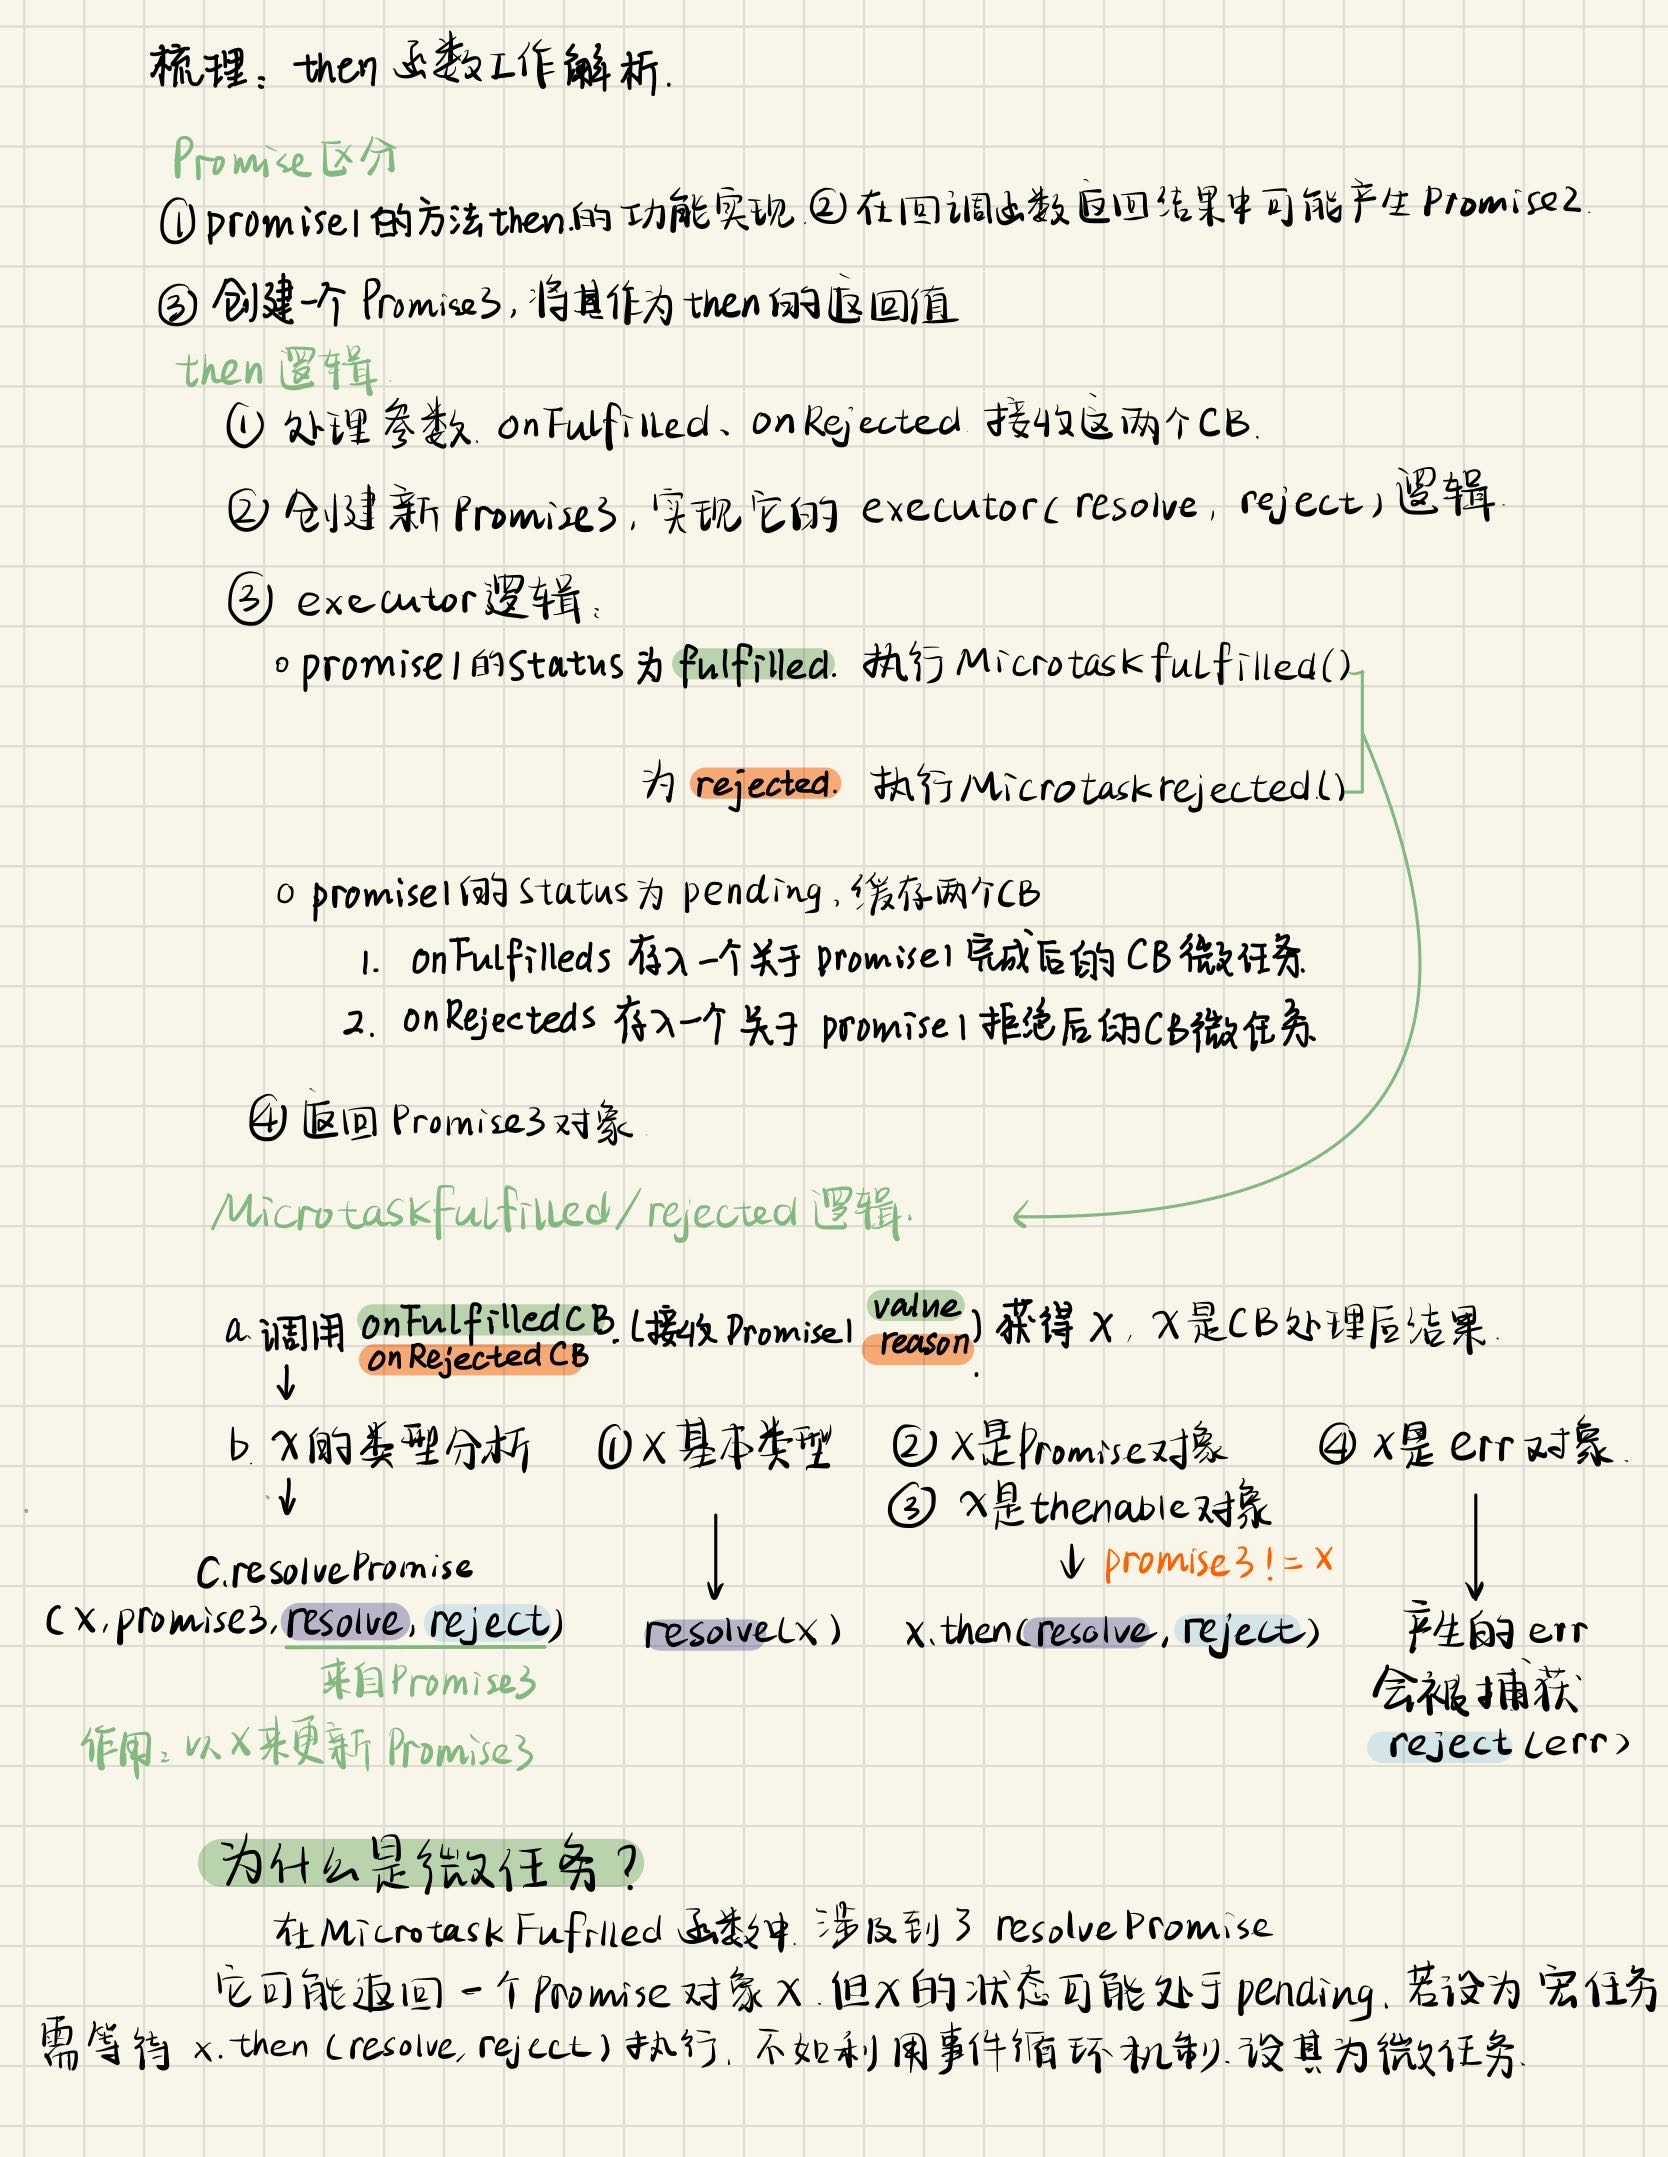 梳理：then 函数工作解析.
Promise区分
① promise1的方法then.的功能实现.② 在回调函数返回结果中可能产生Promise2.
③ 创建一个 Promise3,将其作为then的返回值
then 逻辑.
① 处理参数. onFulfilled、onRejected 接收这两个CB.
② 创建新Promise3,实现它的 executor(resolve, reject)逻辑.
③ executor逻辑:
○ promise1的Status为 fulfilled. 执行Microtaskfulfilled()
为 rejected. 执行Microtaskrejected.()
○ promise1的Status为 pending,缓存两个CB
1. onFulfilleds 存入一个关于 promise1 完成后的 CB微任务.
2. onRejecteds 存入一个关于 promise1 拒绝后的CB微任务.
④ 返回 Promise3对象.
Microtaskfulfilled/rejected逻辑.
a.调用 onFulfilledCB.(接收Promise1 value) 获得 x, x是CB处理后结果.
onRejectedCB reason.
↓
b. x的类型分析 ① x 基本类型 ② x是Promise对象 ④ x是 err对象.
↓ ③ x是thenable对象
↓ ↓ promise3!=x ↓
C.resolvePromise
(x,promise3,resolve,reject) resolve(x) x.then(resolve,reject) 产生的 err
来自Promise3 会被捕获
作用:以x来更新Promise3 reject(err)
为什么是微任务?
在MicrotaskFufilled 函数中.涉及到了 resolvePromise
它可能返回一个Promise对象x.但x的状态可能处于pending,若设为宏任务
需等待 x.then(resolve,reject)执行,不如利用事件循环机制.设其为微任务.